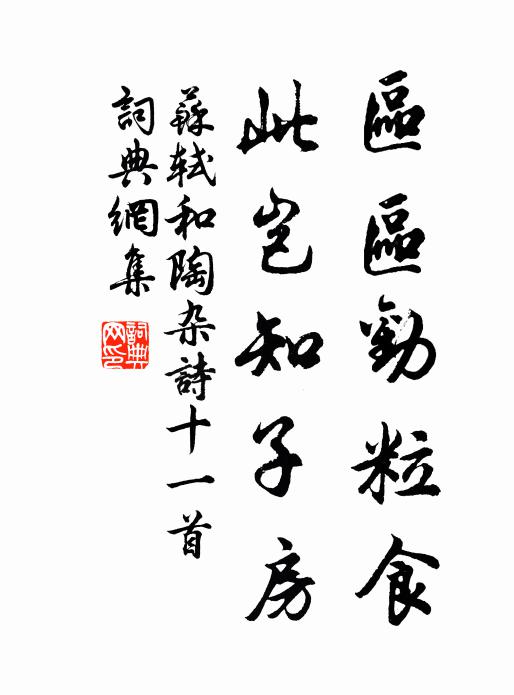 區區勸粒食
此豈知子房
蘇軾和陶杂詩十一首
詞典網集
詞典
网印